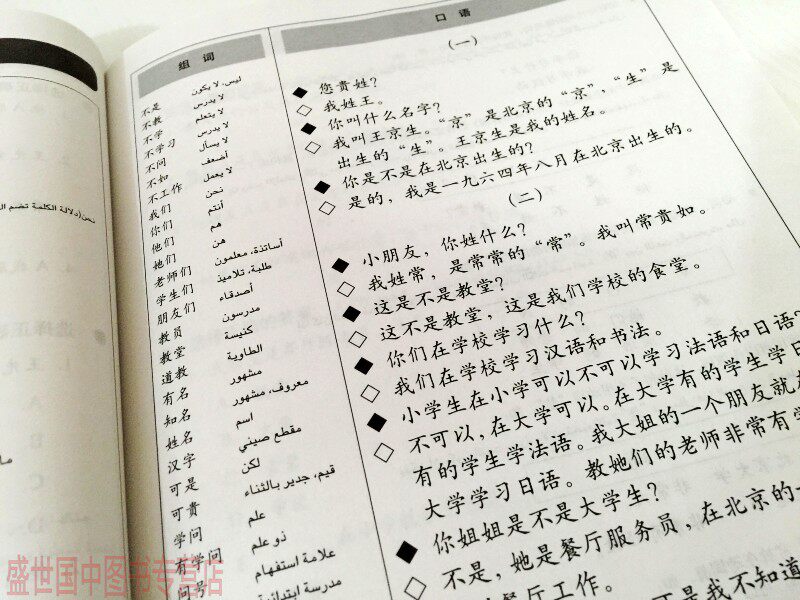 组词
不是 ليس، لا يكون
不教 لا يدرس
不学 لا يتعلم
不学习 لا يدرس
不问 لا يسأل
不如 أضعف
不工作 لا يعمل
我们 نحن
你们 أنتم
他们 هم
她们 هن
老师们 أساتذة، معلمون
学生们 طلبة، تلاميذ
朋友们 أصدقاء
教员 مدرسون
教堂 كنيسة
道教 الطاوية
有名 مشهور
知名 معروف، مشهور
姓名 اسم
汉字 مقطع صيني
可是 لكن
可贵 قيم، جدير بالثناء
学问 علم
有学问 ذو علم
问号 علامة استفهام
مدرسة ابتدائية
口语
（一）
◆ 您贵姓？
◇ 我姓王。
◆ 你叫什么名字？
◇ 我叫王京生。“京”是北京的“京”，“生”是
出生的“生”。王京生是我的姓名。
◆ 你是不是在北京出生的？
◇ 是的，我是一九六四年八月在北京出生的。
（二）
◆ 小朋友，你姓什么？
◇ 我姓常，是常常的“常”。我叫常贵如。
◆ 这是不是教堂？
◇ 这不是教堂，这是我们学校的食堂。
◆ 你们在学校学习什么？
◇ 我们在学校学习汉语和书法。
◆ 小学生在小学可以不可以学习法语和日语？
◇ 不可以，在大学可以。在大学有的学生学日
有的学生学法语。我大姐的一个朋友就在
大学学习日语。教她们的老师非常有学
◆ 你姐姐是不是大学生？
◇ 不是，她是餐厅服务员，在北京的一
餐厅工作。
可是我不知道
نحن (دلالة الكلمة تضم ال
盛世国中图书专营店